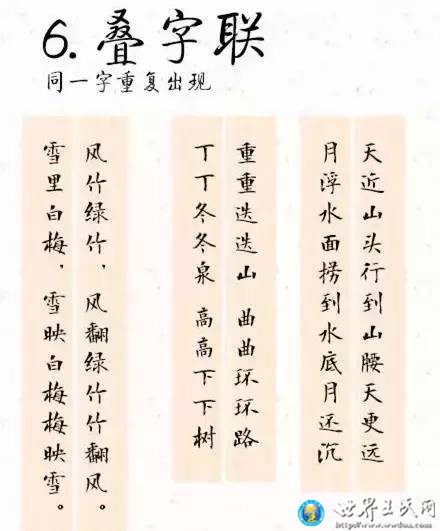 6. 叠字联
同一字重复出现
天近山头行到山腰天更远
月浮水面捞到水底月还沉
重重迭迭山 曲曲环环路
丁丁冬冬泉 高高下下树
风竹绿竹，风翻绿竹竹翻风。
雪里白梅，雪映白梅梅映雪。
世界王氏网